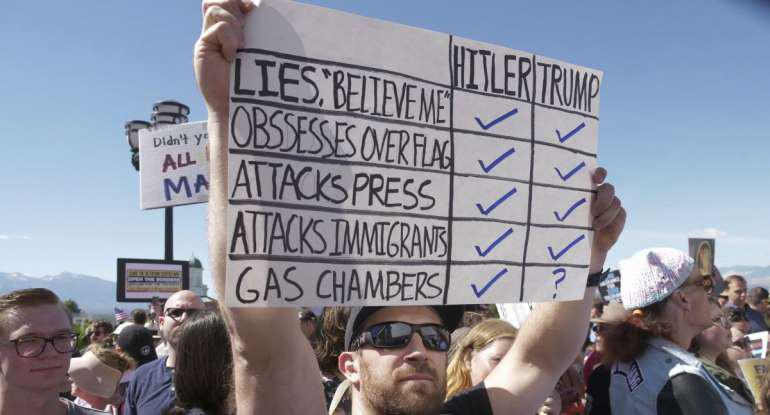 HITLER TRUMP
LIES, "BELIEVE ME" ✓ ✓
OBSSESSES OVER FLAG ✓ ✓
ATTACKS PRESS ✓ ✓
ATTACKS IMMIGRANTS ✓ ✓
GAS CHAMBERS ✓ ?
Didn't y
ALL
MA